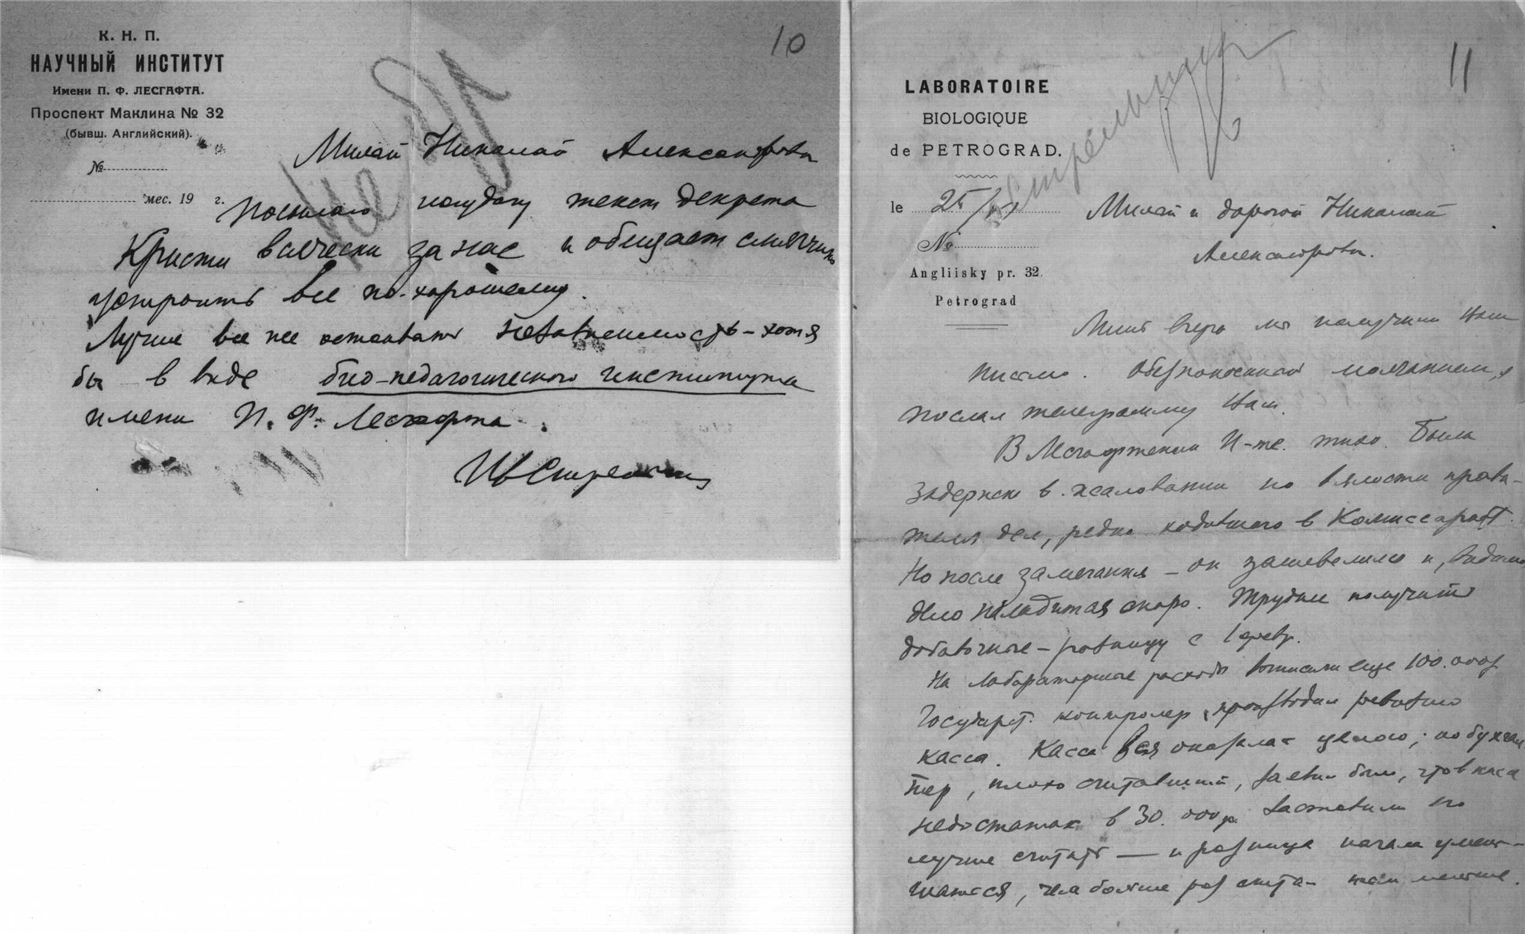 10
К. Н. П.
НАУЧНЫЙ ИНСТИТУТ
Имени П. Ф. ЛЕСГАФТА.
Проспект Маклина № 32
(бывш. Английский).
№
мес. 19 г.
Милый Николай Александрович
Посылаю текст декрета
Кристи всячески за нас и обещает
устроить все по-хорошему.
Лучше все же независимость - хотя
бы в виде био-педагогического института
имени П. Ф. Лесгафта.
11
LABORATOIRE
BIOLOGIQUE
de PETROGRAD.
le 25/
№
Angliisky pr. 32.
Petrograd
Милый и дорогой Николай
Александрович.
вчера мы получили Ваше
письмо. Обеспокоенный молчанием,
послал телеграмму Вам.
В Лесгафтском И-те тихо. Была
задержка в жаловании по вялости прави-
теля дел, редко ходившего в Комиссариат.
Но после замечания - он зашевелился и, видимо
дело наладится скоро. Трудно получить
добавочные - разницу с 1 февр.
На лабораторные расходы выписали еще 100.000 р
Государст. контролер производил ревизию
кассы. Касса вся оказалась целою; но бухгал
тер, плохо считавший, заявил было, что в кассе
недостаток в 30.000 р. Заставили его
лучше считать — и разница начала умень-
шаться, чем больше раз считал тем меньше.